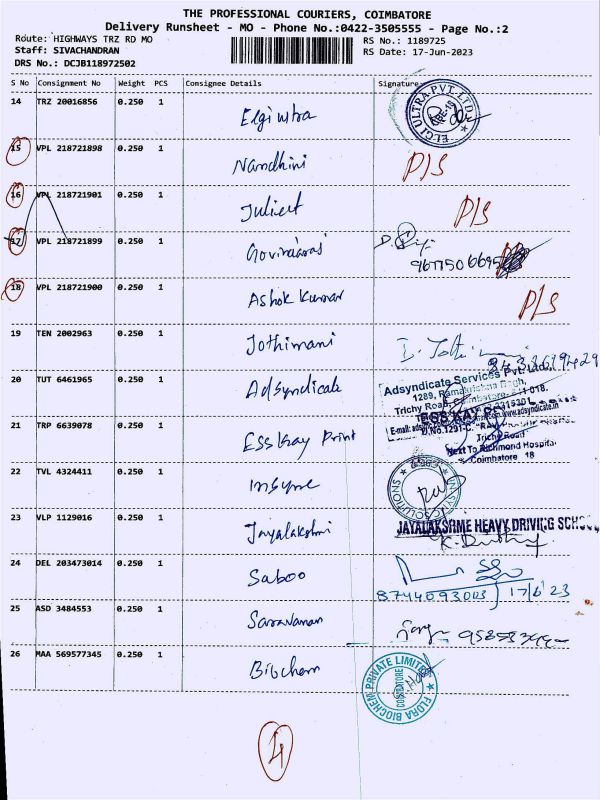 THE PROFESSIONAL COURIERS, COIMBATORE
Delivery Runsheet - MO - Phone No.:0422-3505555 - Page No.:2
Route: HIGHWAYS TRZ RD MO
RS No.: 1189725
Staff: SIVACHANDRAN
RS Date: 17-Jun-2023
DRS No.: DCJB118972502
S No Consignment No Weight PCS Consignee Details Signature
14 TRZ 20016856 0.250 1 Elgi ultra
ELGI ULTRA PVT LTD
15 VPL 218721898 0.250 1 Nandhini P/S
16 VPL 218721901 0.250 1 Juliert P/S
17 VPL 218721899 0.250 1 Govindaraj
18 VPL 218721900 0.250 1 Ashok Kumar P/S
19 TEN 2002963 0.250 1 Jothimani
20 TUT 6461965 0.250 1 Adsyndicate
Adsyndicate Services Pvt. Ltd.,
1289, Ramakrishna
Trichy Road, Coimbatore
www.adsyndicate.in
21 TRP 6639078 0.250 1 Ess Kay Print
ESS KAY
D.No.1291-C,
Trichy Road
Next To Richmond Hospital
Coimbatore 18
22 TVL 4324411 0.250 1 Insyne
SOLUTIONS
23 VLP 1129016 0.250 1 Jayalakshmi
JAYALAKSHME HEAVY DRIVING SCHOOL
24 DEL 203473014 0.250 1 Saboo
8744093003 17/6/23
25 ASD 3484553 0.250 1 Saravanan
26 MAA 569577345 0.250 1 Biochem
FLORA BIOCHEM PRIVATE LIMITED
COIMBATORE
4